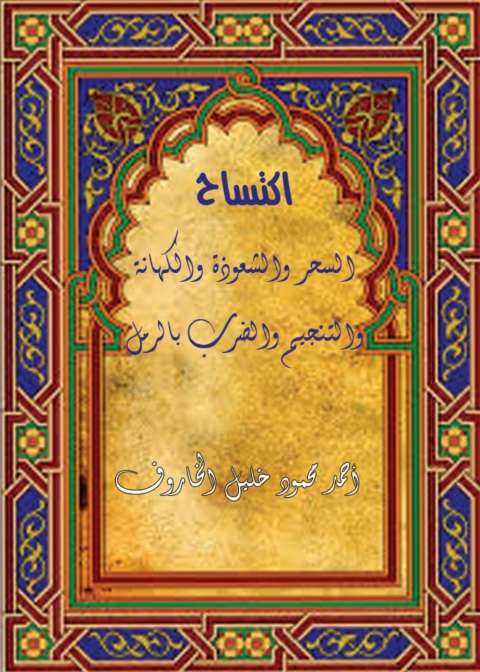 اكتساح
السحر والشعوذة والكهانة
والتنجيم والضرب بالرمل
أحمد محمود خليل الخاروف